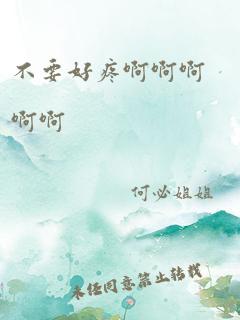 不要好疼啊啊啊
啊啊
何必姐姐
未经同意禁止转载